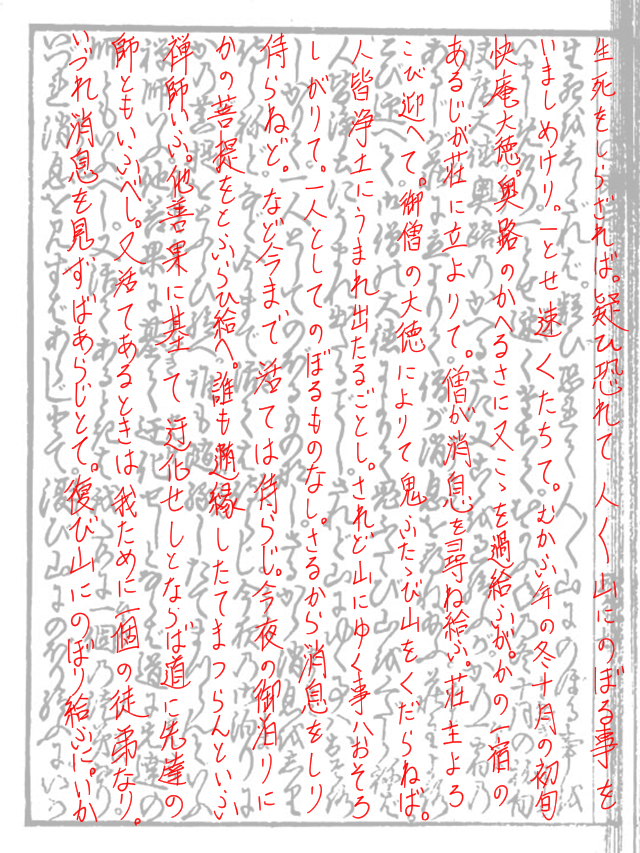 生死をしらざれば。疑ひ恐れて人〱山にのぼる事を
いましめけり。一とせ速くたちて。むかふ年の冬十月の初旬
快庵大徳。奥路のかへるさに又こゝを過給ふが。かの一宿の
あるじが荘に立よりて。僧が消息を尋ね給ふ。荘主よろ
こび迎へて。御僧の大徳によりて鬼ふたゝび山をくだらねば。
人皆浄土にうまれ出たるごとし。されど山にゆく事ハおそろ
しがりて。一人としてのぼるものなし。さるから消息をしり
侍らねど。など今まで活ては侍らじ。今夜の御泊りに
かの菩提をとふらひ給へ。誰も随縁したてまつらんといふ
禅師いふ。他善果に基て迁化せしとならば道に先達の
師ともいふべし。又活てあるときは我ために一個の徒弟なり。
いづれ消息を見ずばあらじとて。復び山にのぼり給ふに。いか